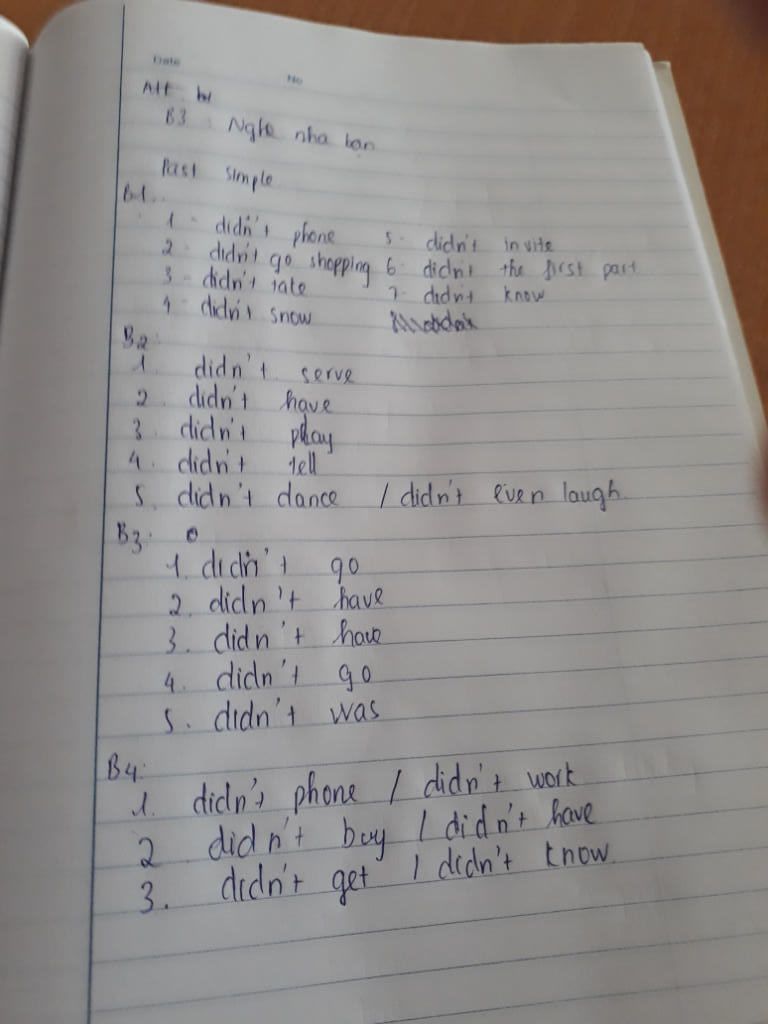 Date No
Att : bt
B3 : Nghe nha ban
Past simple
B1.
1 - didn't phone 5 - didn't invite
2 - didn't go shopping 6 - didn't the first part
3 - didn't tate 7 - didn't know
4 - didn't snow
B2:
1. didn't serve
2 didn't have
3. didn't play
4. didn't tell
5. didn't dance / didn't even laugh
B3:
1. didn't go
2. didn't have
3. didn't have
4. didn't go
5. didn't was
B4:
1. didn't phone / didn't work
2 didn't buy / didn't have
3. didn't get / didn't know